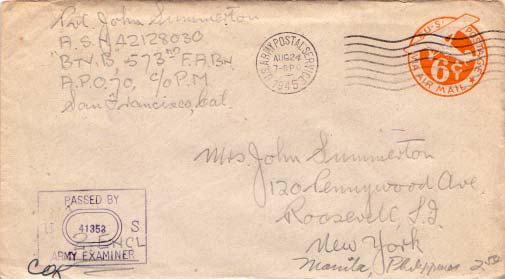 Pvt. John Summerton
A.S.N 42128030
BTY.B 573rd F.A.BN
A.P.O. 70, C/o P.M
San Francisco, Cal.
U.S. ARMY POSTAL SERVICE
AUG 24
7-PM
1945
U.S. POSTAGE
6¢
VIA AIR MAIL
Mrs. John Summerton
120 Pennywood Ave.
Roosevelt, L.I.
New York
Manila Philippines 2.50
PASSED BY
41353 S
2 ENCL
ARMY EXAMINER